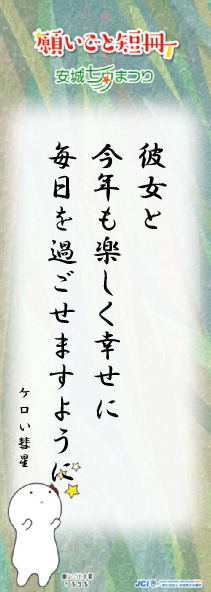 願いごと短冊
安城七夕まつり
彼女と
今年も楽しく幸せに
毎日を過ごせますように
ケロい彗星
JCI